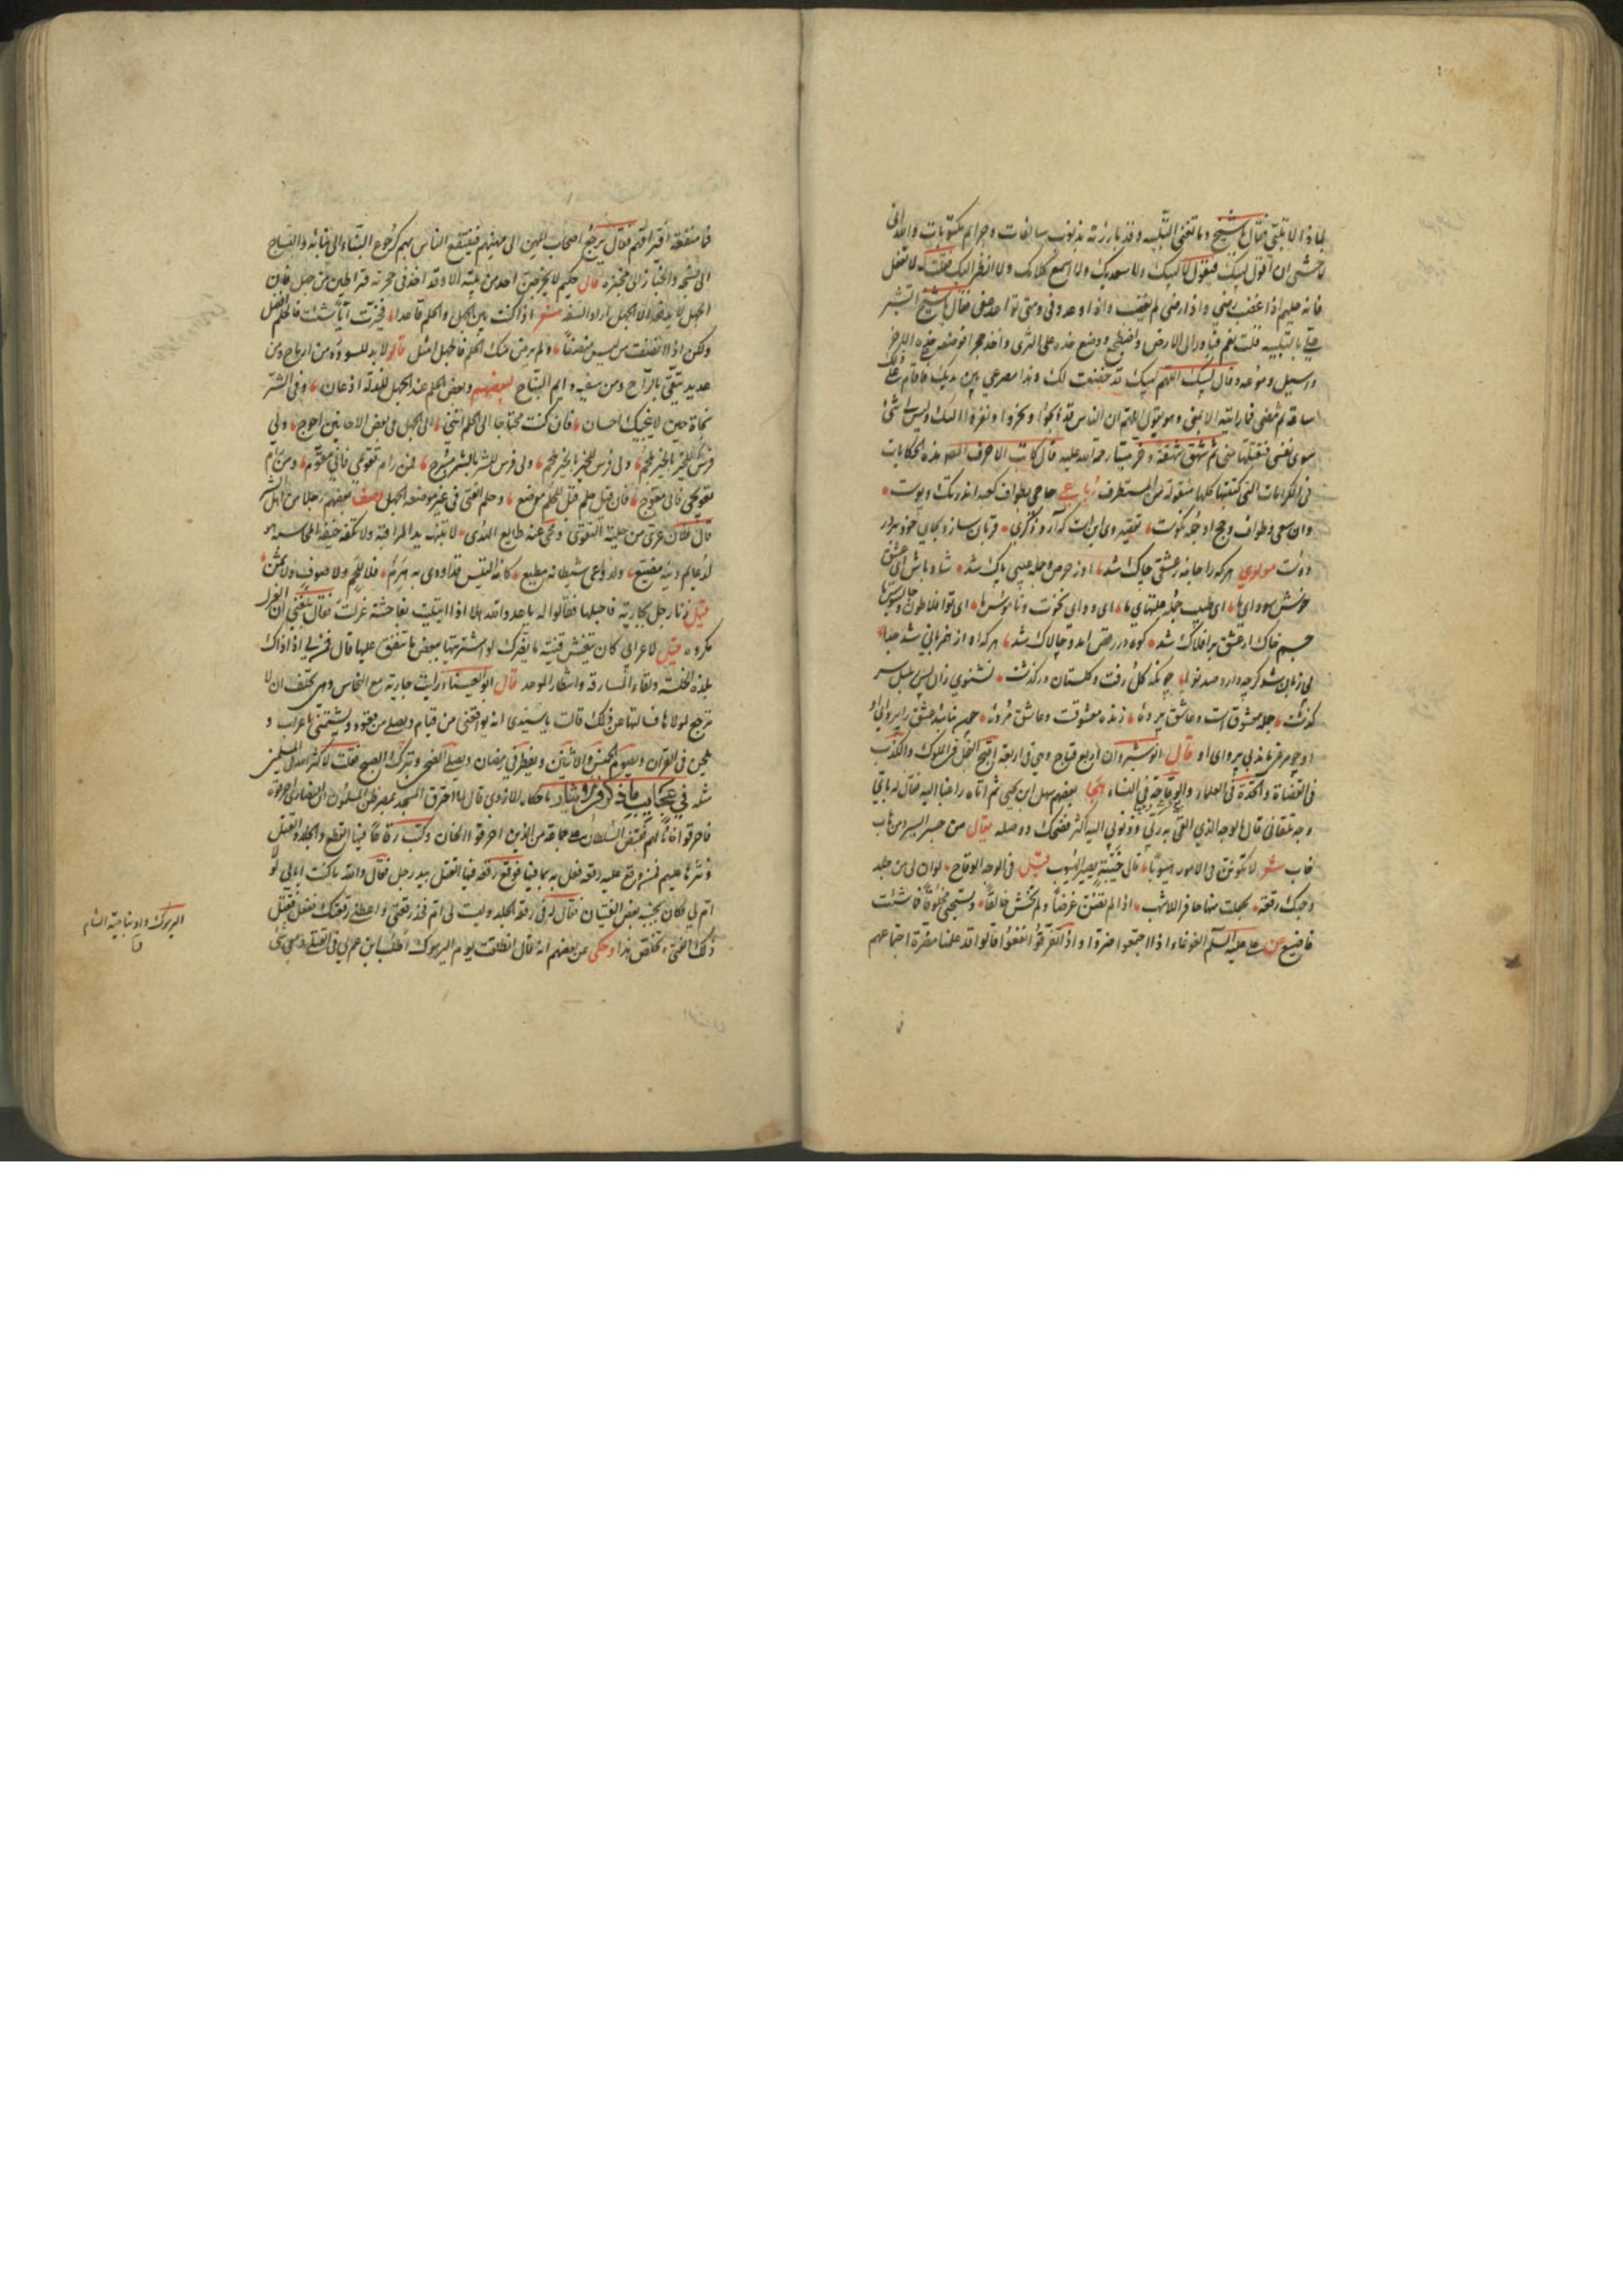 لماذا لا تلبي فقال يا شيخ وما تغني التلبية وقد بارزته بذنوب سالفات وجرايم مكتوبات والله اني
لاخشى ان اقول لبيك فيقول لا لبيك ولا سعديك ولا اسمع كلامك ولا انظر اليك فقلت له لا تفعل
فانه حليم اذا غضب رضي واذا رضي لم يغضب واذا اوعد وفى ومتى توعد عفى فقال يا شيخ اتشير
علي بالتلبية قلت نعم فبادر الى الارض واضطجع ووضع خده على الثرى واخذ حجرا فوضعه على خده الاخر
واسبل دموعه وقال لبيك اللهم لبيك قد خضعت لك وهذا مصرعي بين يديك فاقام على ذلك
ساعة ثم مضى فما رايته الا بمنى وهو يقول اللهم ان الناس قد ذبحوا ونحروا وتقربوا اليك وليس لي شئ
سوى نفسي فتقبلها مني ثم شهق شهقة وخر ميتا رحمة الله عليه قال كاتب الاحرف هذه الحكايات
في الكرامات التي كتبتها كلها منقولة من المستطرف رباعي حاجي بطواف كعبه اندر تك وپوست
وان سعي وطواف وحج او جمله نكوست تقصير وي اين است كه آرد دكري قربان سازد بجاي خود در ره
دوست مولوي هركرا جامه ز عشقي چاك شد او ز حرص وجمله عيبي پاك شد شاد باش اي عشق
خوش سوداي ما اي طبيب جمله علتهاي ما اي دواي نخوت وناموس ما اي تو افلاطون وجالينوس ما
جسم خاك از عشق بر افلاك شد كوه در رقص امد وچالاك شد هركه او از هم زباني شد جدا
بي زبان شد كرچه دارد صد نوا چونكه كل رفت وكلستان در كذشت نشنوي زان پس ز بلبل سر
كذشت جمله معشوق است وعاشق پرده زنده معشوقست وعاشق مرده چون نباشد عشق را پرواي او
او چو مرغي ماند بي پر واي او قال انوشروان اربع قبايح وهي في اربعة اقبح البخل في الملوك والكذب
في القضاة والحدة في العلماء والوقاحة في النساء هجا بعضهم سهل ابن يحيى ثم اتاه راغبا اليه فقال له باي
وجه تلقاني قال بالوجه الذي القى به ربي وذنوبي اليه اكثر فضحك ووصله يقال من جسر ايسر ومن هاب
خاب شعر لا تكونن في الامور هيوبا فالى خيبة يصير الهيوب قيل في الوجه الوقاح لو ان لي من جلد
وجهك رقعة لجعلت منها حافر الاشهب اذا لم تصن عرضا ولم تخش خالقا وتستحي مخلوقا فما شئت
فاصنع عن علي عليه السلام الغوغاء اذا اجتمعوا ضروا واذا تفرقوا نفعوا قالوا قد علمنا مضرة اجتماعهم
فما منفعة افتراقهم فقال يرجع اصحاب المهن الى مهنهم فينتفع الناس بهم كرجوع البناء الى بنائه والنساج
الى منسجه والخباز الى مخبزه قال حكيم لا يخرجن احد من بيته الا وقد اخذ في حجزته قيراطين من جهل فان
الجهل لا يدفعه الا الجهل اراد السفه شعر اذا كنت بين الجهل والحلم قاعدا فخيرت ايا شئت فالحلم افضل
ولكن اذا انصفت من ليس منصفا ولم يرض منك الحلم فالجهل امثل قالوا لا بد للسودد من ارماح ومن
عديد يتقى بالراح ومن سفيه دايم النباح لبعضهم وبعض الحلم عند الجهل للذلة اذعان وفي الشر
نجاة حين لا ينجيك احسان فان كنت محتاجا الى الحلم انني الى الجهل في بعض الاحايين احوج ولي
فرس للخير بالخير ملجم ولي فرس للشر بالشر مسرج فمن رام تقويمي فاني مقوم ومن رام
تعويجي فاني معوج فان قيل حلم قل للحلم موضع وحلم الفتى في غير موضعه الجهل وصف بعضهم رجلا من اهل الشر
قال فلان عري من حلية التقوى ومحي عنه طابع الهدى لا تثنيه يد المراقبة ولا تكفه خيفة المحاسبة وهو
لدعايم دينه مضيع ولدواعي شيطانه مطيع
قيل زنا رجل بجارية فاحبلها فقالوا له يا عدو الله هلا اذا ابتليت بفاحشة عزلت فقال بلغني ان العزل
مكروه قيل لاعرابي كان يتعشق قينة ما يضرك لو اشتريتها ببعض ما تنفق عليها قال فمن لي اذ ذاك
بلذة الخلسة ولقاء المسارقة وانتظار الموعد قال ابو العيناء رايت جارية مع النخاس وهي تحلف ان لا
ترجع لمولاها فسالتها عن ذلك قالت يا سيدي انه يواقعني من قيام ويصلي من قعود ويشتمني باعراب و
يلحن في القران ويصوم الخميس والاثنين ويفطر في رمضان ويصلي الضحى ويترك الصبح فقلت لا كثر الله في المسلمين
مثله في عجايب ما ذكر في الرشا ما حكاه الاوزي قال لما احترق المسجد بمصر ظن المسلمون ان النصارى احرقوه
فاحرقوا خانا لهم فقبض السلطان على جماعة من الذين احرقوا الخان وكتب رقاعا فيها القطع والجلد والقتل
ونثرها عليهم فمن وقع عليه رقعة فعل به ما فيها فوقع رقعة فيها القتل بيد رجل فقال والله ما كنت ابالي لو لا
ام لي وكان بجنبه بعض الفتيان فقال له في رقعتي الجلد وليست لي ام فخذ رقعتي واعطني رقعتك ففعل فقتل
ذلك الفتى وتخلص هذا وحكى عن بعضهم انه قال انطلقت يوم اليرموك اطلب ابن عم لي في القتلى ومعي شئ
اليرموك واد بناحية الشام